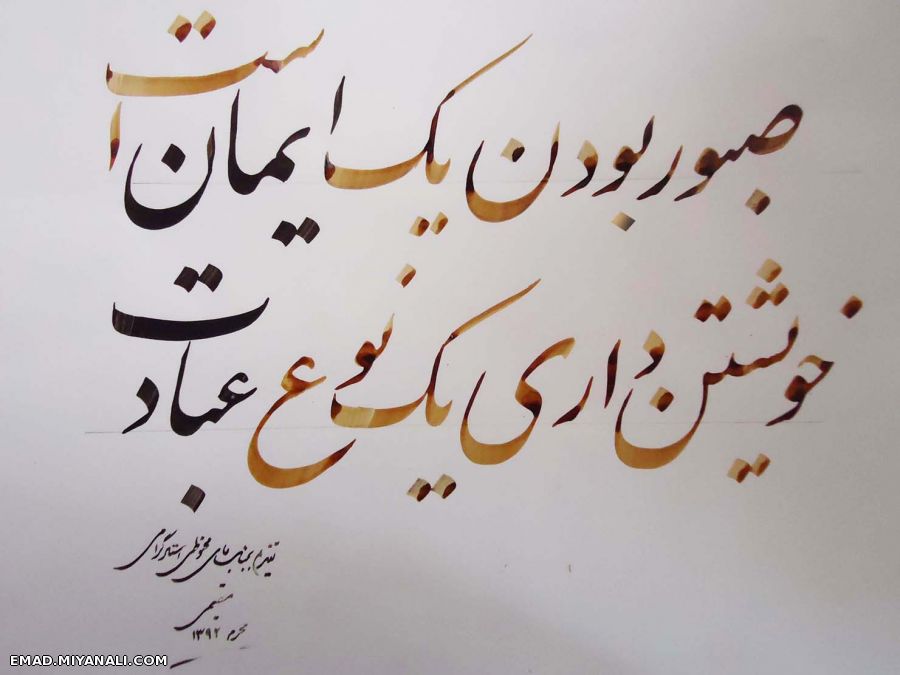 صبور بودن یک ایمان است
خویشتن داری یک نوع عبادت
تقدیم به جناب آقای محفوظی استاد گرامی
مقیمی
محرم ۱۳۹۲
EMAD.MIYANALI.COM